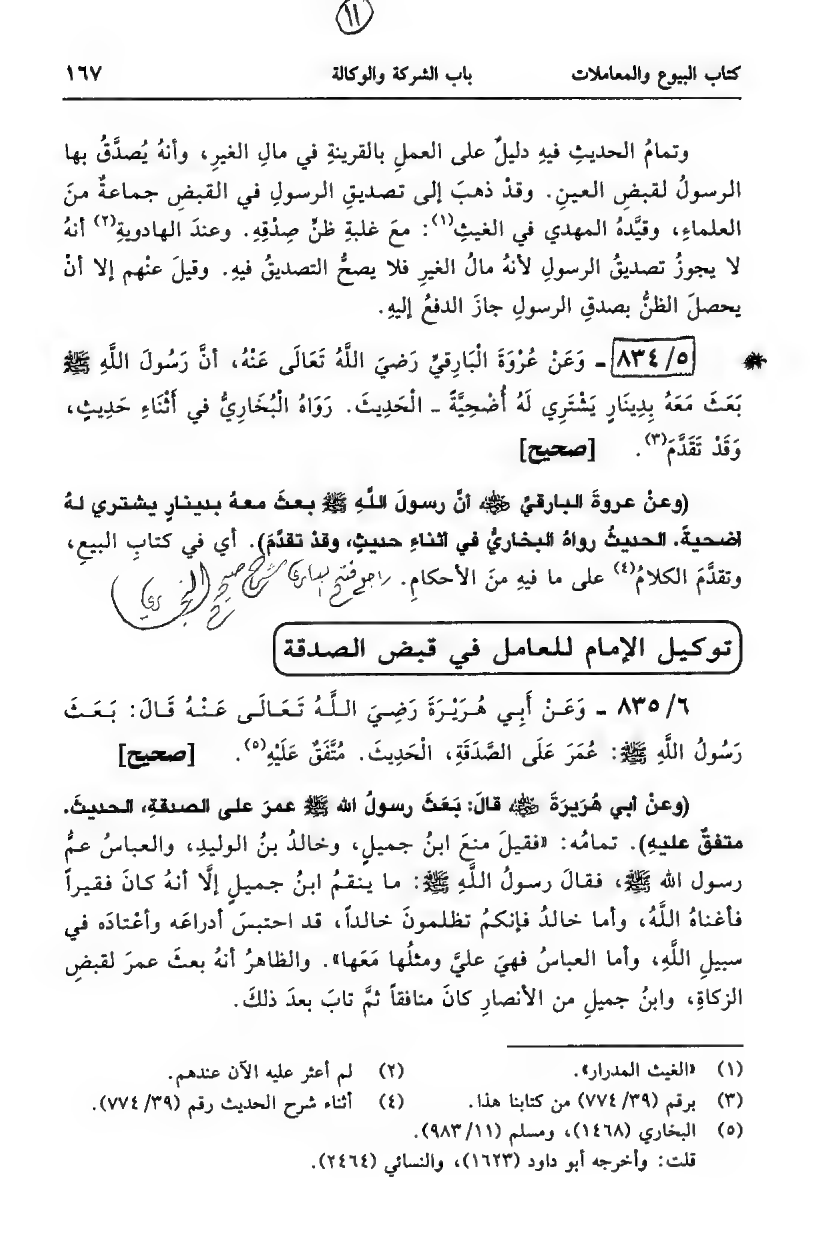 ١١
كتاب البيوع والمعاملات باب الشركة والوكالة ١٦٧
وتمامُ الحديثِ فيهِ دليلٌ على العملِ بالقرينةِ في مالِ الغيرِ، وأنهُ يُصدَّقُ بها
الرسولُ لقبضِ العينِ. وقدْ ذهبَ إلى تصديقِ الرسولِ في القبضِ جماعةٌ منَ
العلماءِ، وقيَّدهُ المهدي في الغيثِ(١): معَ غلبةِ ظنِّ صِدْقِهِ. وعندَ الهادويةِ(٢) أنهُ
لا يجوزُ تصديقُ الرسولِ لأنهُ مالُ الغيرِ فلا يصحُّ التصديقُ فيهِ. وقيلَ عنْهم إلا أنْ
يحصلَ الظنُّ بصدقِ الرسولِ جازَ الدفعُ إليهِ.
٨٣٤/٥ - وَعَنْ عُرْوَةَ الْبَارِقيِّ رَضيَ اللَّهُ تَعَالَى عَنْهُ، أنَّ رَسُولَ اللَّهِ ﷺ
بَعَثَ مَعَهُ بِدِينَارٍ يَشْتَرِي لَهُ أُضْحِيَّةً - الْحَدِيثَ. رَوَاهُ الْبُخَارِيُّ في أَثْنَاءِ حَدِيثٍ،
وَقَدْ تَقَدَّمَ(٣). [صحيح]
(وعنْ عروةَ البارقيِّ رضي الله عنه أنَّ رسولَ اللَّهِ ﷺ بعثَ معهُ بدينارٍ يشتري لهُ
أضحيةً. الحديثَ رواهُ البخاريُّ في أثناءِ حديثٍ، وقدْ تقدَّمَ). أي في كتابِ البيعِ،
وتقدَّمَ الكلامُ(٤) على ما فيهِ منَ الأحكامِ. راجع فتح الباري شرح صحيح البخاري
توكيل الإمام للعامل في قبض الصدقة
٨٣٥/٦ - وَعَنْ أَبِي هُرَيْرَةَ رَضِيَ اللَّهُ تَعَالَى عَنْهُ قَالَ: بَعَثَ
رَسُولُ اللَّهِ ﷺ: عُمَرَ عَلَى الصَّدَقَةِ، الْحَدِيثَ. مُتَّفَقٌ عَلَيْهِ(٥). [صحيح]
(وعنْ أبي هُرَيرَةَ رضي الله عنه قالَ: بَعَثَ رسولُ الله ﷺ عمرَ على الصدقةِ، الحديثَ.
متفقٌ عليهِ). تمامُه: «فقيلَ منعَ ابنُ جميلٍ، وخالدُ بنُ الوليدِ، والعباسُ عمُّ
رسول الله ﷺ، فقالَ رسولُ اللَّهِ ﷺ: ما ينقمُ ابنُ جميلٍ إلَّا أنهُ كانَ فقيراً
فأغناهُ اللَّهُ، وأما خالدُ فإنكمُ تظلمونَ خالداً، قد احتبسَ أدراعَه وأعْتادَه في
سبيلِ اللَّهِ، وأما العباسُ فهيَ عليَّ ومثلُها مَعَها». والظاهرُ أنهُ بعثَ عمرَ لقبضِ
الزكاةِ، وابنُ جميلِ من الأنصارِ كانَ منافقاً ثمَّ تابَ بعدَ ذلكَ.
(١) «الغيث المدرار». (٢) لم أعثر عليه الآن عندهم.
(٣) برقم (٧٧٤/٣٩) من كتابنا هذا. (٤) أثناء شرح الحديث رقم (٧٧٤/٣٩).
(٥) البخاري (١٤٦٨)، ومسلم (٩٨٣/١١).
قلت: وأخرجه أبو داود (١٦٢٣)، والنسائي (٢٤٦٤).